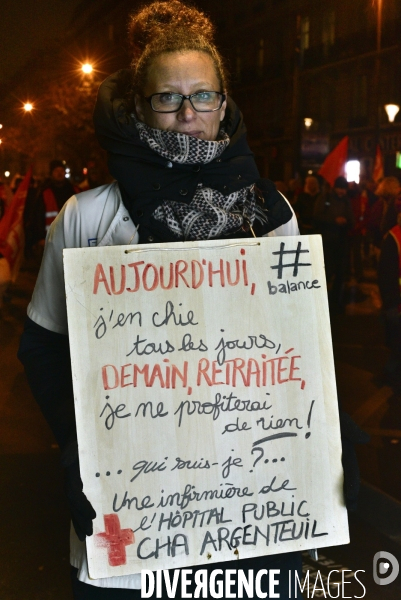 AUJOURD'HUI,
#balance
j'en chie
tous les jours,
DEMAIN, RETRAITÉE,
je ne profiterai
de rien!
... qui suis-je ?...
Une infirmière de
l'HÔPITAL PUBLIC
CHA ARGENTEUIL
DIVERGENCE IMAGES